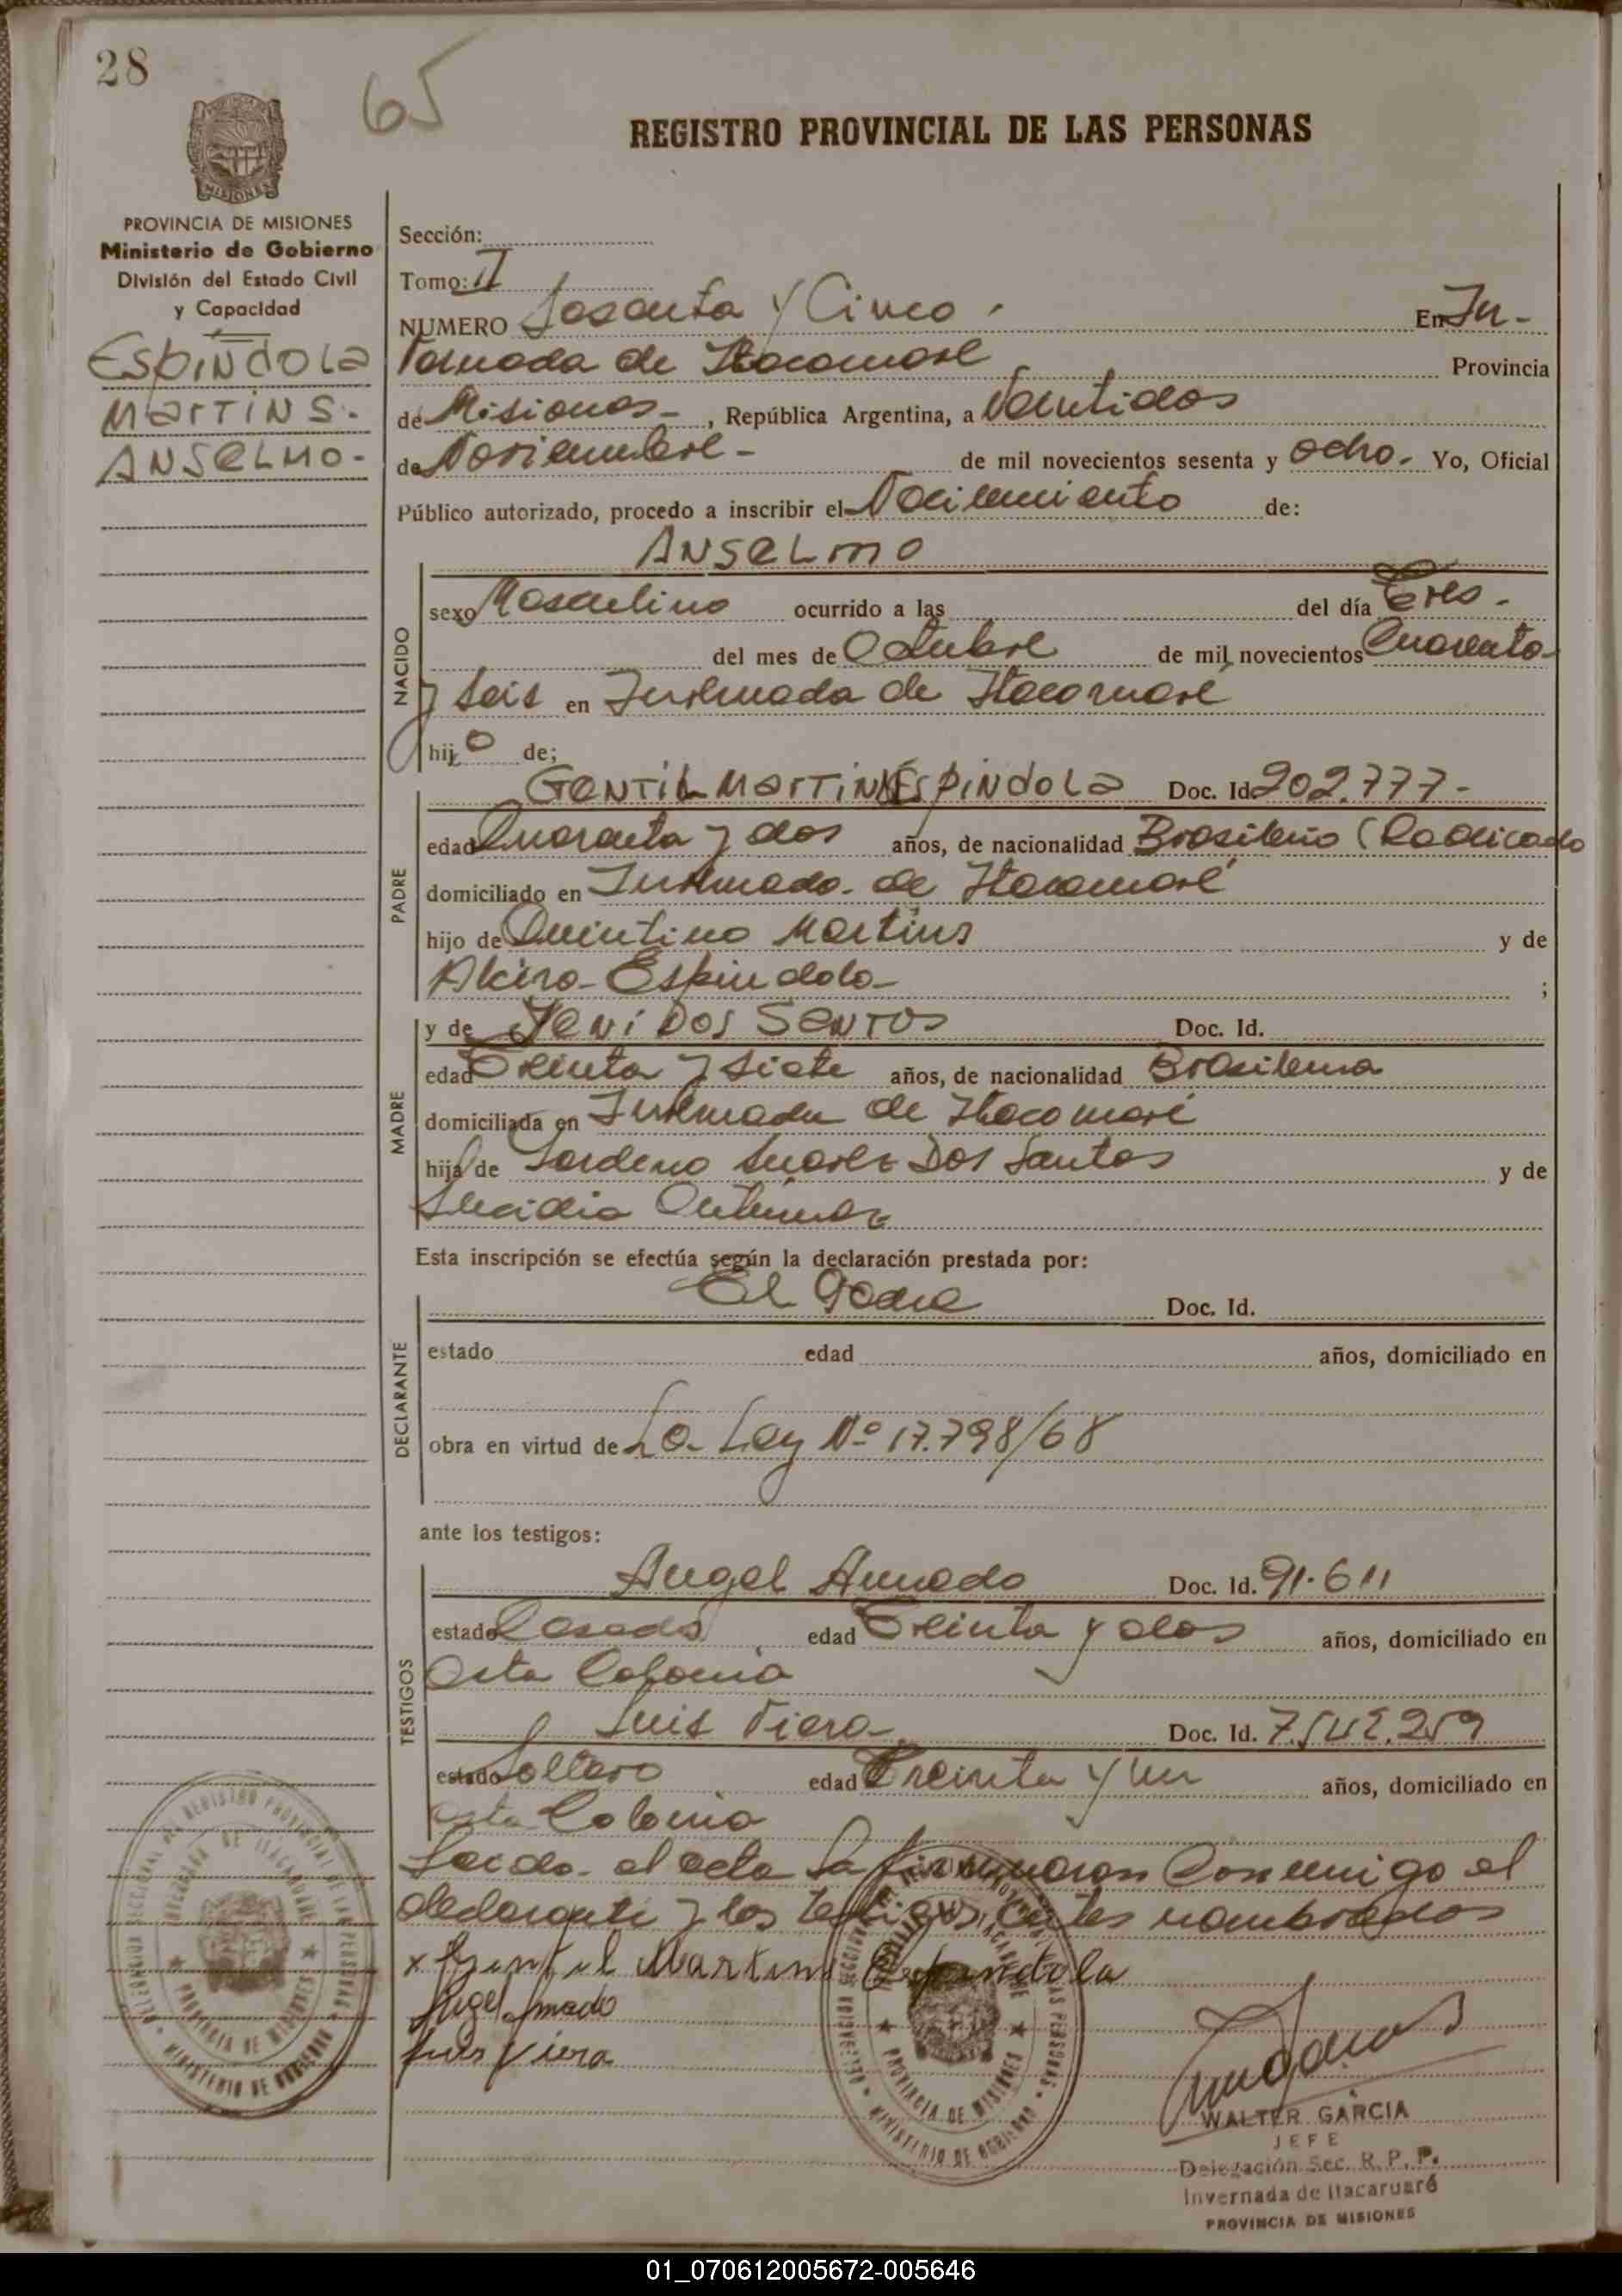 28
65
REGISTRO PROVINCIAL DE LAS PERSONAS
MISIONES
PROVINCIA DE MISIONES
Ministerio de Gobierno
División del Estado Civil
y Capacidad
ESPINDOLA
MARTINS.
ANSELMO-
Sección:
Tomo: II
NUMERO Sesenta y Cinco. En In-
vernada de Itacaruaré Provincia
de Misiones-, República Argentina, a Veintidos
de Noviembre- de mil novecientos sesenta y ocho. Yo, Oficial
Público autorizado, procedo a inscribir el Nacimiento de:
ANSELMO
NACIDO
sexo Masculino ocurrido a las del día Tres-
del mes de Octubre de mil novecientos Cuarenta
y Seis en Invernada de Itacaruaré
hijo de;
PADRE
GENTIL MARTINS ESPINDOLA Doc. Id. 202.777-
edad Cuarenta y dos años, de nacionalidad Brasileño (Radicado
domiciliado en Invernada de Itacaruaré
hijo de Quintino Martins y de
Alcira Espindola ;
MADRE
y de JENI DOS SANTOS Doc. Id.
edad Treinta y siete años, de nacionalidad Brasilena
domiciliada en Invernada de Itacaruaré
hija de Suarez Dos Santos y de
Esta inscripción se efectúa según la declaración prestada por:
DECLARANTE
El Padre Doc. Id.
estado edad años, domiciliado en
obra en virtud de La Ley Nº 17.798/68
ante los testigos:
TESTIGOS
Angel Amado Doc. Id. 91.611
estado Casado edad Treinta y dos años, domiciliado en
esta Colonia
Luis Viera Doc. Id. 7.542.259
estado Soltero edad Treinta y un años, domiciliado en
esta Colonia
Leida el acta la firmaron Conmigo el
declarante y los testigos antes nombrados
x Gentil Martins Espindola
Angel Amado
Luis Viera
DELEGACION SECCIONAL DEL REGISTRO PROVINCIAL DE LAS PERSONAS
INVERNADA DE ITACARUARE
PROVINCIA DE MISIONES
MINISTERIO DE GOBIERNO
WALTER GARCIA
JEFE
Delegación Sec. R. P. P.
Invernada de Itacaruaré
PROVINCIA DE MISIONES
01_070612005672-005646